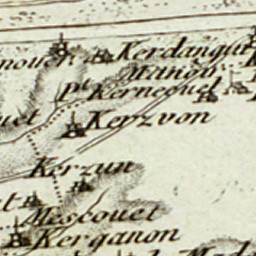 Kerdangui
Mangu
P.t Kernequel
Kerzvon
Kerzun
Mescouet
Kerganon